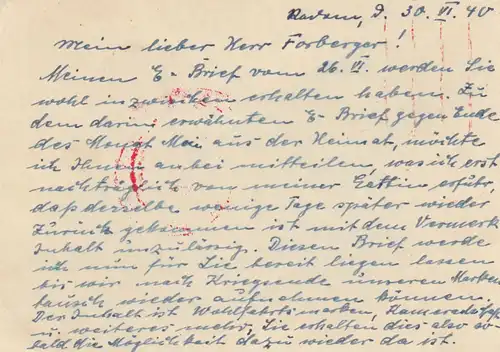 Radom, d. 30. VI. 40
Mein lieber Herr Forberger!
Meinen E-Brief vom 26. VI. werden Sie
wohl inzwischen erhalten haben. Zu
dem darin erwähnten E-Brief gegen Ende
des Monat Mai aus der Heimat, möchte
ich Ihnen anbei mitteilen, was ich erst
nachträglich von meiner Gattin erfuhr,
daß derselbe wenige Tage später wieder
zurück gekommen ist mit dem Vermerk
Inhalt unzulässig. Diesen Brief werde
ich nun für Sie bereit liegen lassen
bis wir nach Kriegsende unseren Marken
tausch wieder aufnehmen können.
Der Inhalt ist Wohlfahrtsmarken, Kameradschafts
u. weiteres mehr, Sie erhalten dies also so
bald die Möglichkeit dazu wieder da ist.